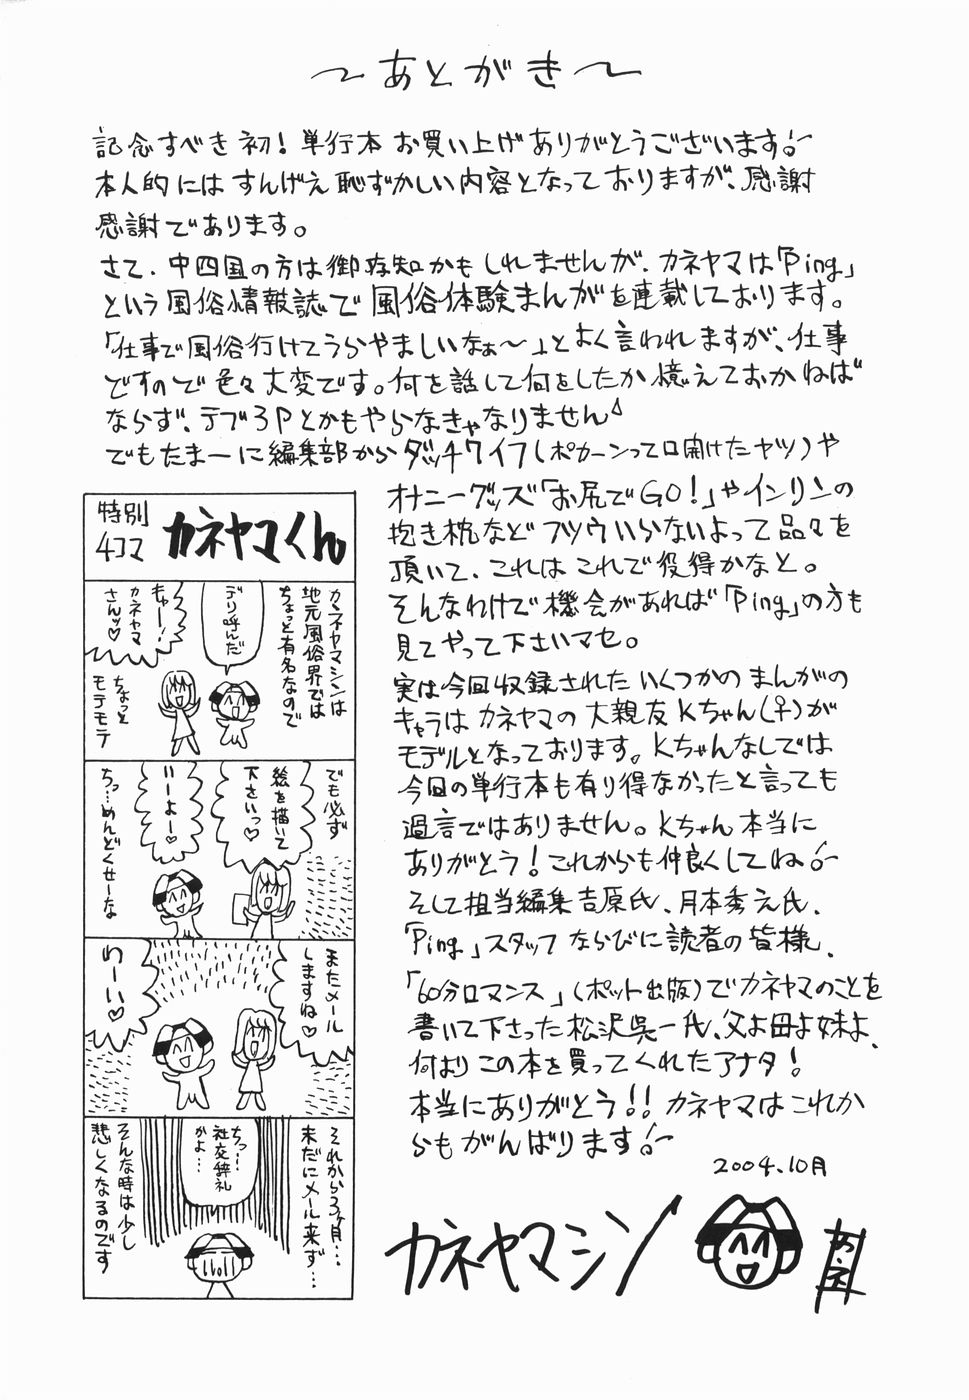 ～あとがき～
記念すべき初！単行本お買い上げありがとうございます！
本人的にはすんげえ恥ずかしい内容となっておりますが、感謝
感謝であります。
さて、中四国の方は御存知かもしれませんが、カネヤマは「Ping」
という風俗情報誌で風俗体験まんがを連載しております。
「仕事で風俗行けてうらやましいなぁ〜」とよく言われますが、仕事
ですので色々大変です。何を話して何をしたか憶えておかねば
ならず、デブ3Pとかもやらなきゃなりません
でもたまーに編集部からダッチワイフ(ポカーンって口開けたヤツ)や
オナニーグッズ「お尻でGO！」やインリンの
抱き枕などフツウいらないよって品々を
頂いて、これはこれで役得かなと。
そんなわけで機会があれば「Ping」の方も
見てやって下さいマセ。
実は今回収録されたいくつかのまんがの
キャラはカネヤマの大親友Kちゃん(♀)が
モデルとなっております。Kちゃんなしでは
今回の単行本も有り得なかったと言っても
過言ではありません。Kちゃん本当に
ありがとう！これからも仲良くしてね！
そして担当編集吉原氏、月本秀元氏、
「Ping」スタッフならびに読者の皆様、
「60分ロマンス」(ポット出版)でカネヤマのことを
書いて下さった松沢呉一氏、父よ母よ妹よ、
何よりこの本を買ってくれたアナタ！
本当にありがとう！！カネヤマはこれか
らもがんばります！
2004.10月
カネヤマシン
特別
4コマ
カネヤマくん
カネヤマシンは
地元風俗界では
ちょっと有名なので
デリ呼んだ
きゃー！
カネヤマ
さんッ♡
ちょっと
モテモテ
でも必ず
絵を描いて
下さいっ♡
いーよー♡
ちっ…めんどくせーな
またメール
しますね♡
わーい♡
それから3ヶ月…
未だにメール来ず…
ちっ…
社交辞礼
かよ…
そんな時は少し
悲しくなるのです